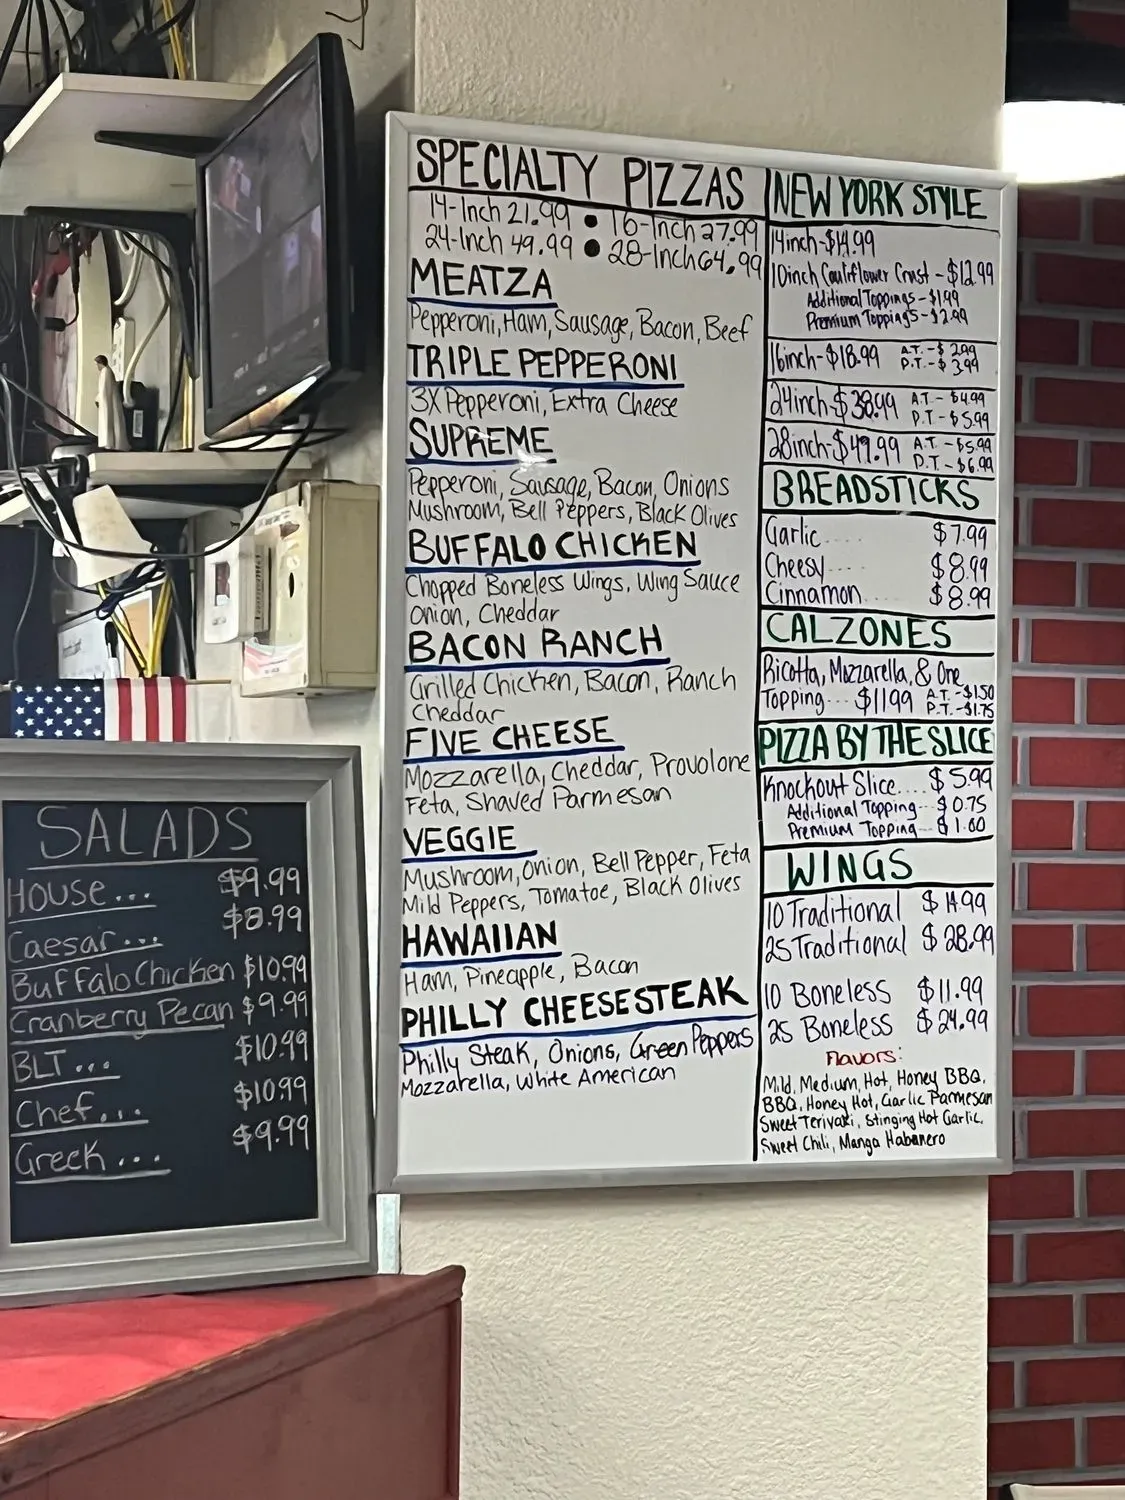 SPECIALTY PIZZAS
14-Inch 21.99 • 16-Inch 27.99
24-Inch 49.99 • 28-Inch 64.99
MEATZA
Pepperoni, Ham, Sausage, Bacon, Beef
TRIPLE PEPPERONI
3X Pepperoni, Extra Cheese
SUPREME
Pepperoni, Sausage, Bacon, Onions
Mushroom, Bell Peppers, Black Olives
BUFFALO CHICKEN
Chopped Boneless Wings, Wing Sauce
Onion, Cheddar
BACON RANCH
Grilled Chicken, Bacon, Ranch
Cheddar
FIVE CHEESE
Mozzarella, Cheddar, Provolone
Feta, Shaved Parmesan
VEGGIE
Mushroom, Onion, Bell Pepper, Feta
Mild Peppers, Tomatoe, Black Olives
HAWAIIAN
Ham, Pineapple, Bacon
PHILLY CHEESESTEAK
Philly Steak, Onions, Green Peppers
Mozzarella, White American
NEW YORK STYLE
14inch-$14.99
10inch Cauliflower Crust-$12.99
Additional Toppings-$1.99
Premium Toppings-$2.99
16inch-$18.99 A.T.-$2.99
P.T.-$3.99
24inch-$38.99 A.T.-$4.99
P.T.-$5.99
28inch-$49.99 A.T.-$5.99
P.T.-$6.99
BREADSTICKS
Garlic.... $7.99
Cheesy.... $8.99
Cinnamon.... $8.99
CALZONES
Ricotta, Mozzarella, & One
Topping... $11.99 A.T.-$1.50
P.T.-$1.75
PIZZA BY THE SLICE
Knockout Slice.... $5.99
Additional Topping... $0.75
Premium Topping... $1.00
WINGS
10 Traditional $14.99
25 Traditional $28.99
10 Boneless $11.99
25 Boneless $24.99
Flavors:
Mild, Medium, Hot, Honey BBQ,
BBQ, Honey Hot, Garlic Parmesan
Sweet Teriyaki, Stinging Hot Garlic,
Sweet Chili, Mango Habanero
SALADS
HOUSE... $9.99
Caesar... $8.99
Buffalo Chicken $10.99
Cranberry Pecan $9.99
BLT... $10.99
Chef... $10.99
Greek... $9.99